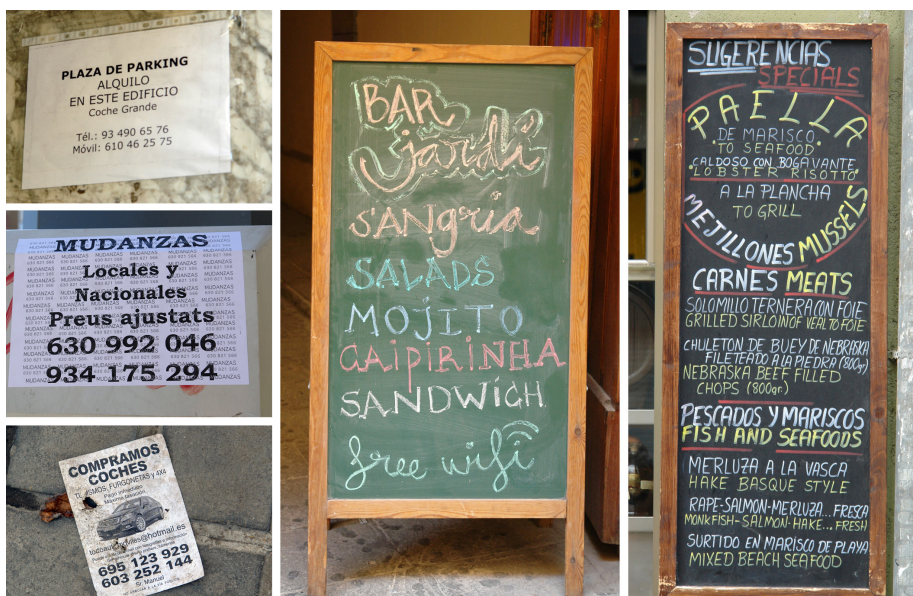 PLAZA DE PARKING
ALQUILO
EN ESTE EDIFICIO
Coche Grande
Tél.: 93 490 65 76
Móvil: 610 46 25 75
MUDANZAS
Locales y
Nacionales
Preus ajustats
630 992 046
934 175 294
COMPRAMOS
COCHES
FURGONETAS y 4X4
695 123 929
603 252 144
Sr. Manuel
BAR
jardí
SANgria
SALADS
MOJITO
CAIPIRINHA
SANDWiCH
free wifi
SUGERENCIAS
SPECIALS
PAELLA
DE MARISCO
TO SEAFOOD
CALDOSO CON BOGAVANTE
LOBSTER RISOTTO
A LA PLANCHA
TO GRILL
MEJILLONES MUSSELS
CARNES MEATS
SOLOMILLO TERNERA CON FOIE
GRILLED SIRLOIN OF VEAL TO FOIE
CHULETON DE BUEY DE NEBRASKA
FILETEADO A LA PIEDRA (800gr)
NEBRASKA BEEF FILLED
CHOPS (800gr)
PESCADOS Y MARISCOS
FISH AND SEAFOODS
MERLUZA A LA VASCA
HAKE BASQUE STYLE
RAPE-SALMON-MERLUZA... FRESCA
MONKFISH-SALMON-HAKE... FRESH
SURTIDO EN MARISCO DE PLAYA
MIXED BEACH SEAFOOD